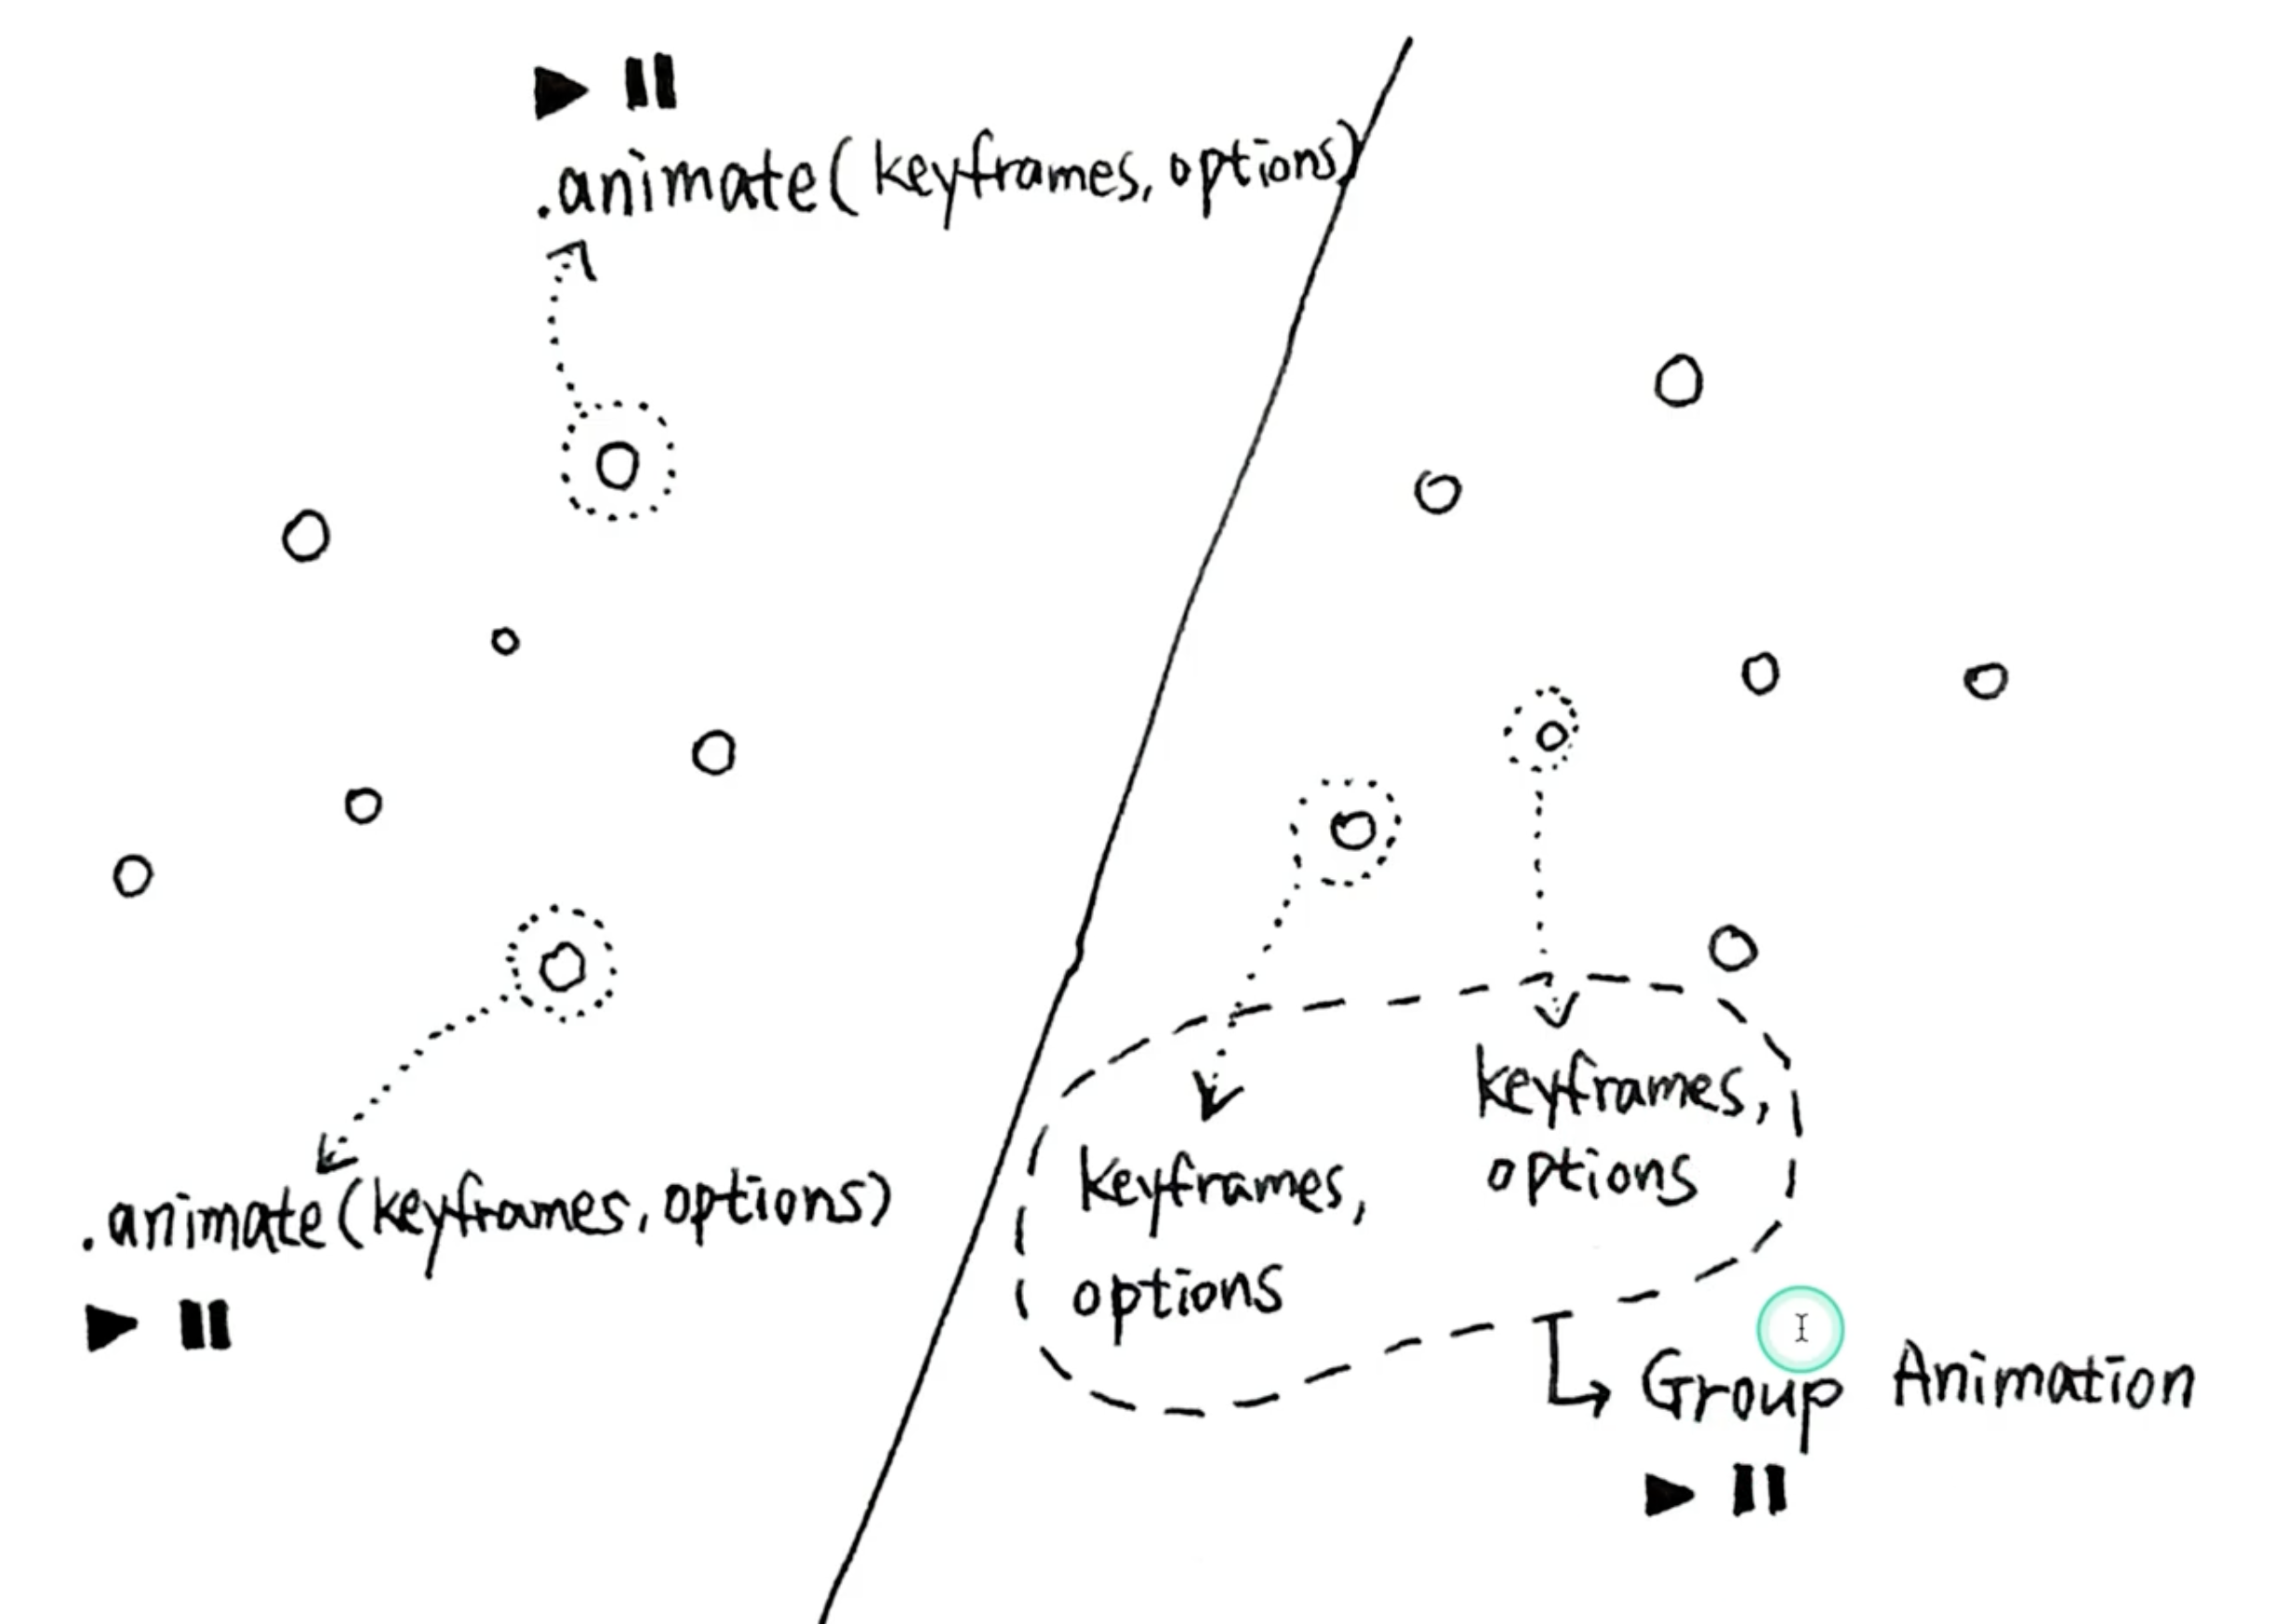 .animate(keyframes, options)
.animate(keyframes, options)
keyframes,
options
keyframes,
options
Group Animation